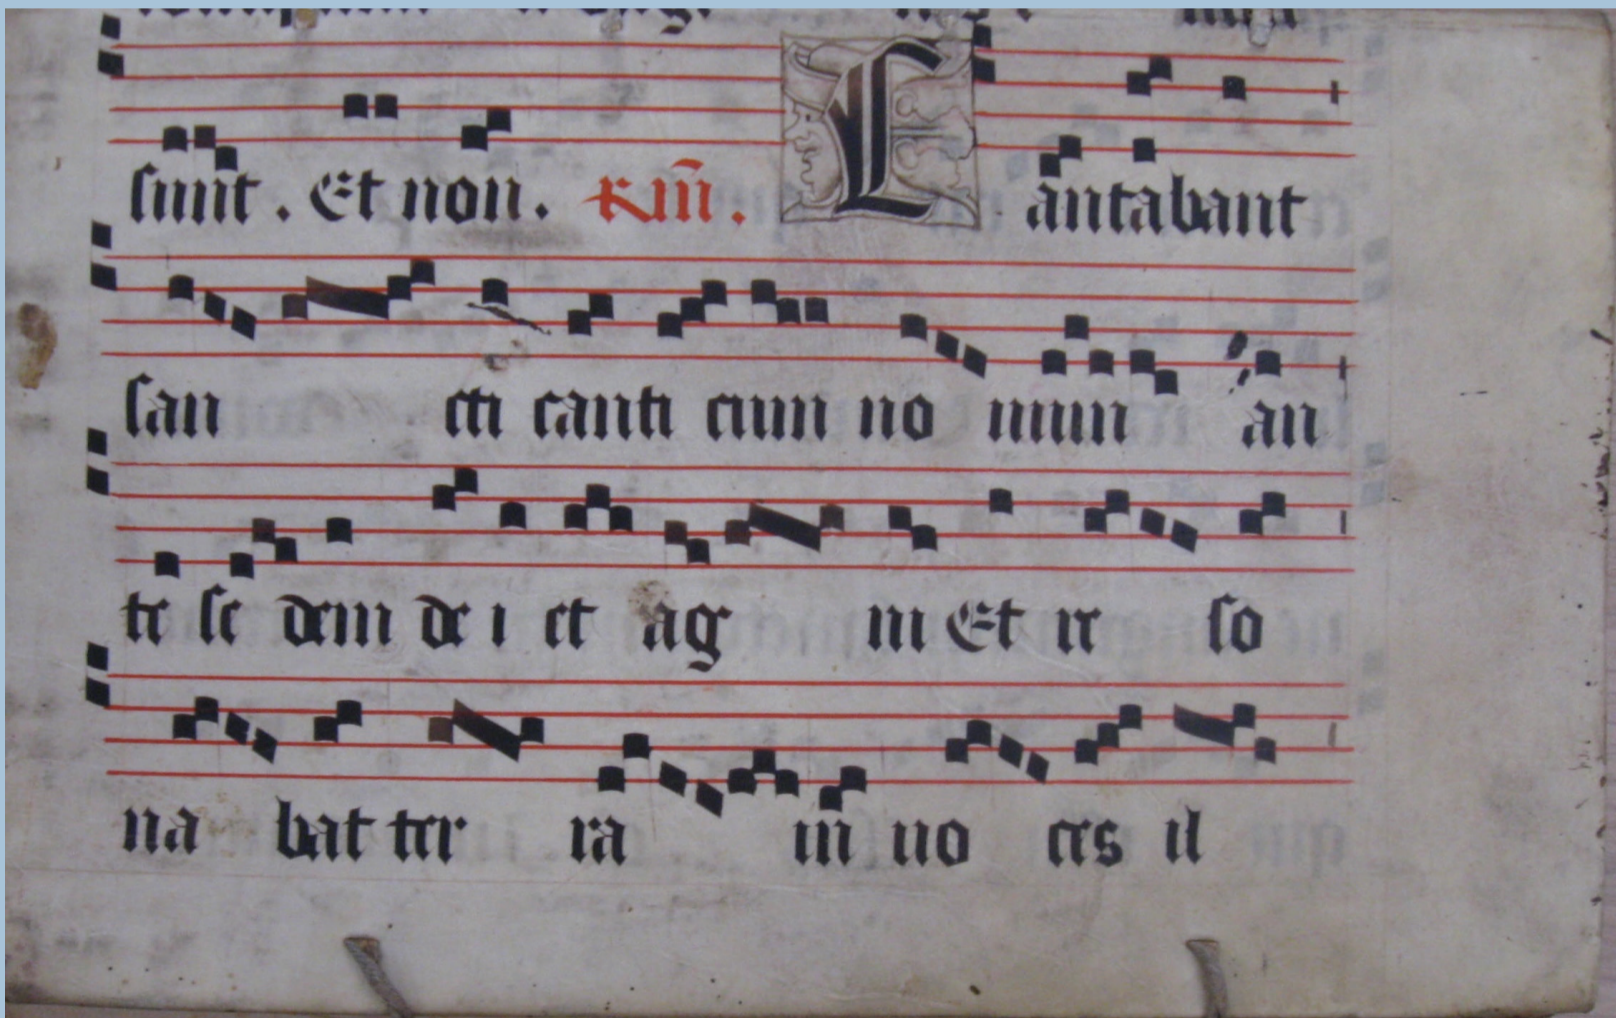 sunt . Et non . R̃m̃ . Cantabant
san cti canti cum no uum an
te se dem de i et ag ni Et re so
na bat ter ra in uo ces il